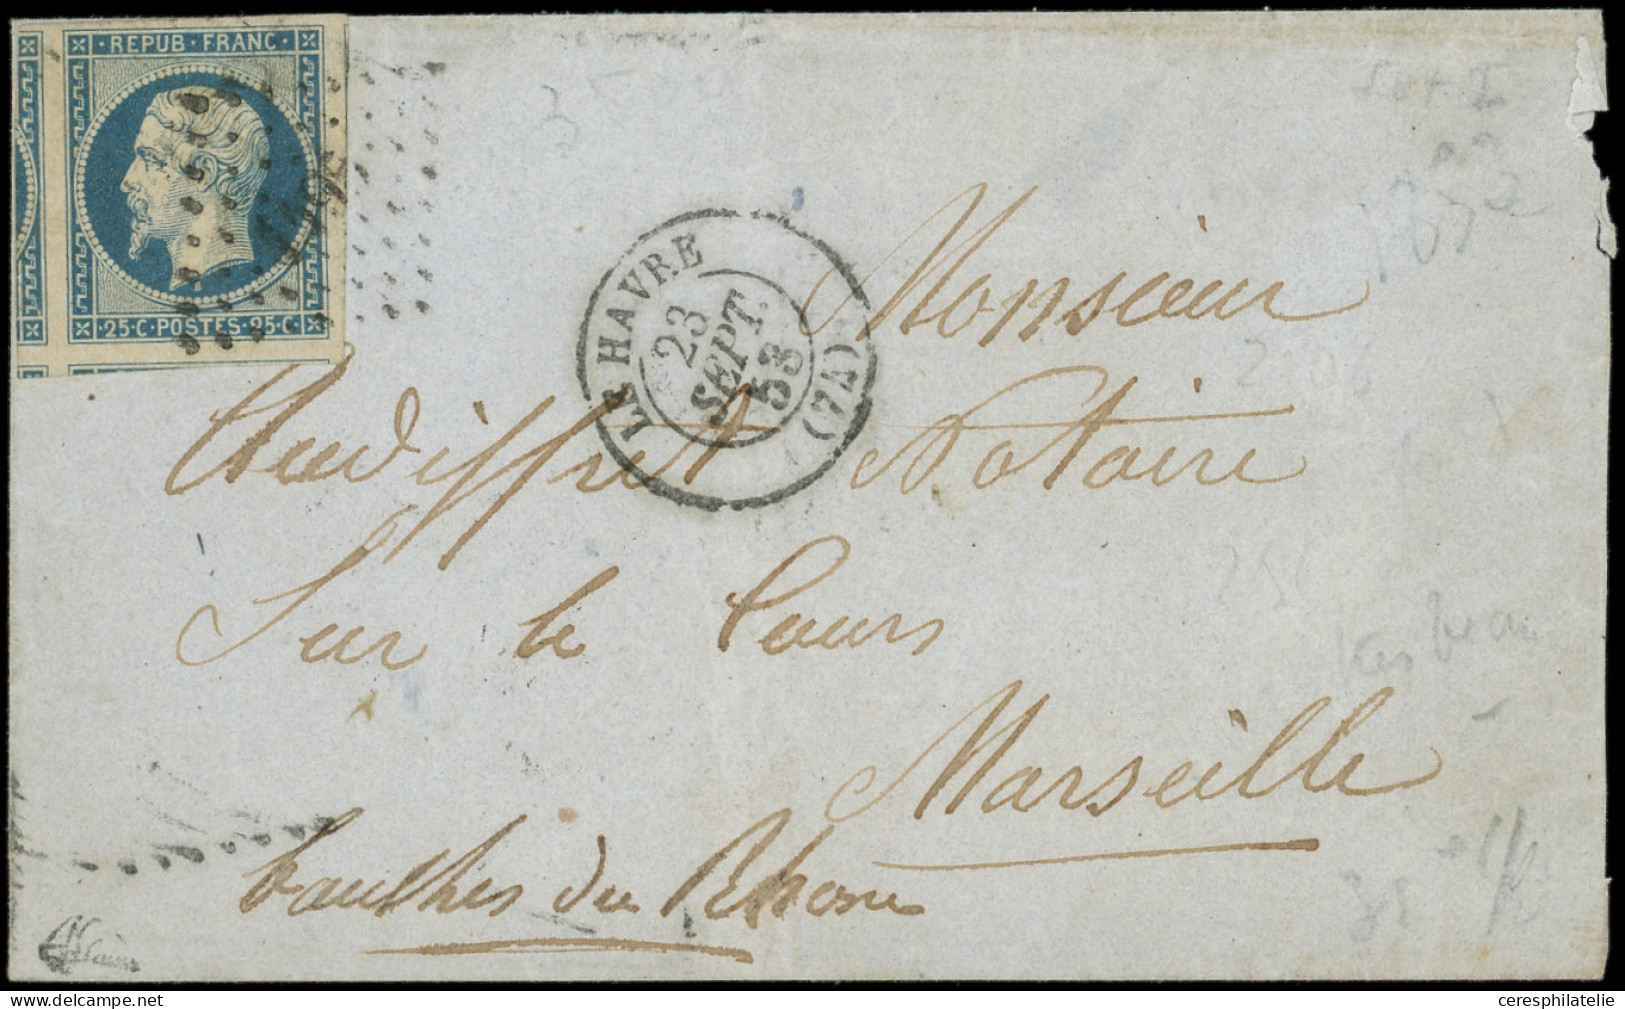 REPUB·FRANC·
25·C·POSTES·25·C·
1495
LE HAVRE
23
SEPT.
53
(74)
Monsieur
Audiffret Notaire
Sur le Cours
Marseille
bouches du Rhone
1853
25c
très beau
ceresphilatelie.com